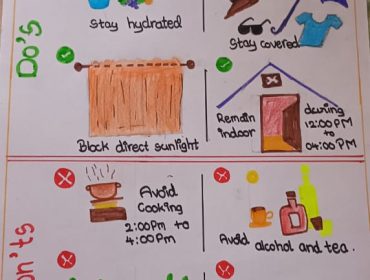 Do's
Stay hydrated
Stay covered
Block direct sunlight
Remain
indoor
during
12:00 PM
to
04:00 PM
Avoid
Cooking
2:00 Pm to
4:00 Pm
Avoid alcohol and tea.
on'ts